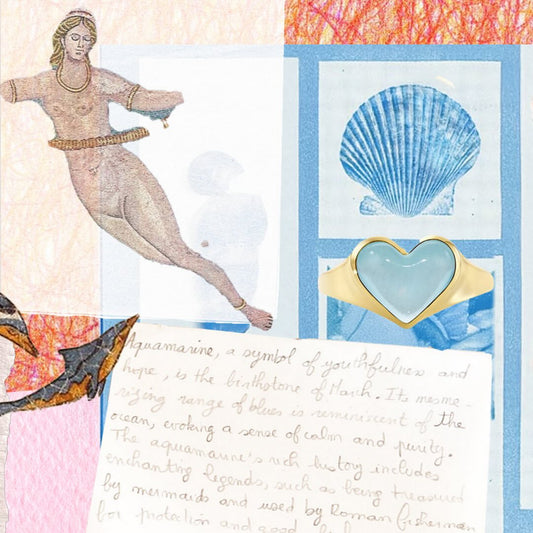 Aquamarine, a symbol of youthfulness and
hope, is the birthstone of March. Its mesme-
rizing range of blues is reminiscent of the
ocean, evoking a sense of calm and purity.
The aquamarine's rich history includes
enchanting legends, such as being treasured
by mermaids and used by Roman fishermen
for protection and good